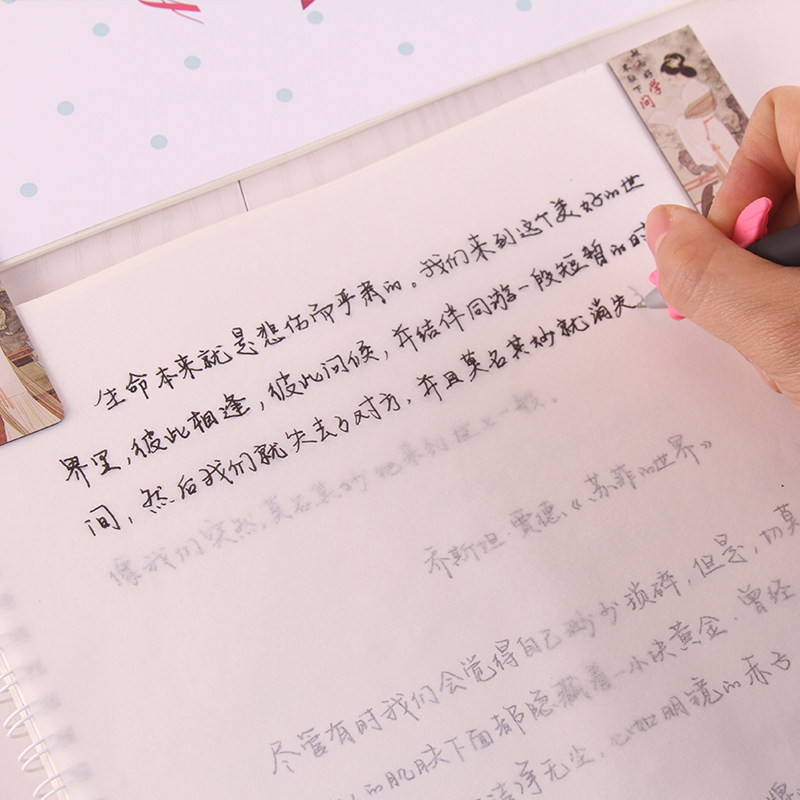 生命本来就是悲伤而严肃的。我们来到这个美好的世
界里，彼此相逢，彼此问候，并结伴同游一段短暂的时
间，然后我们就失去了对方，并且莫名其妙就消失
像我们突然莫名其妙地来到世上一般。
乔斯坦·贾德《苏菲的世界》
尽管有时我们会觉得自己渺小琐碎，但是，切莫
的肌肤下面都隐藏着一小块黄金．曾经
洁净无尘，心如明镜的东方
学
问